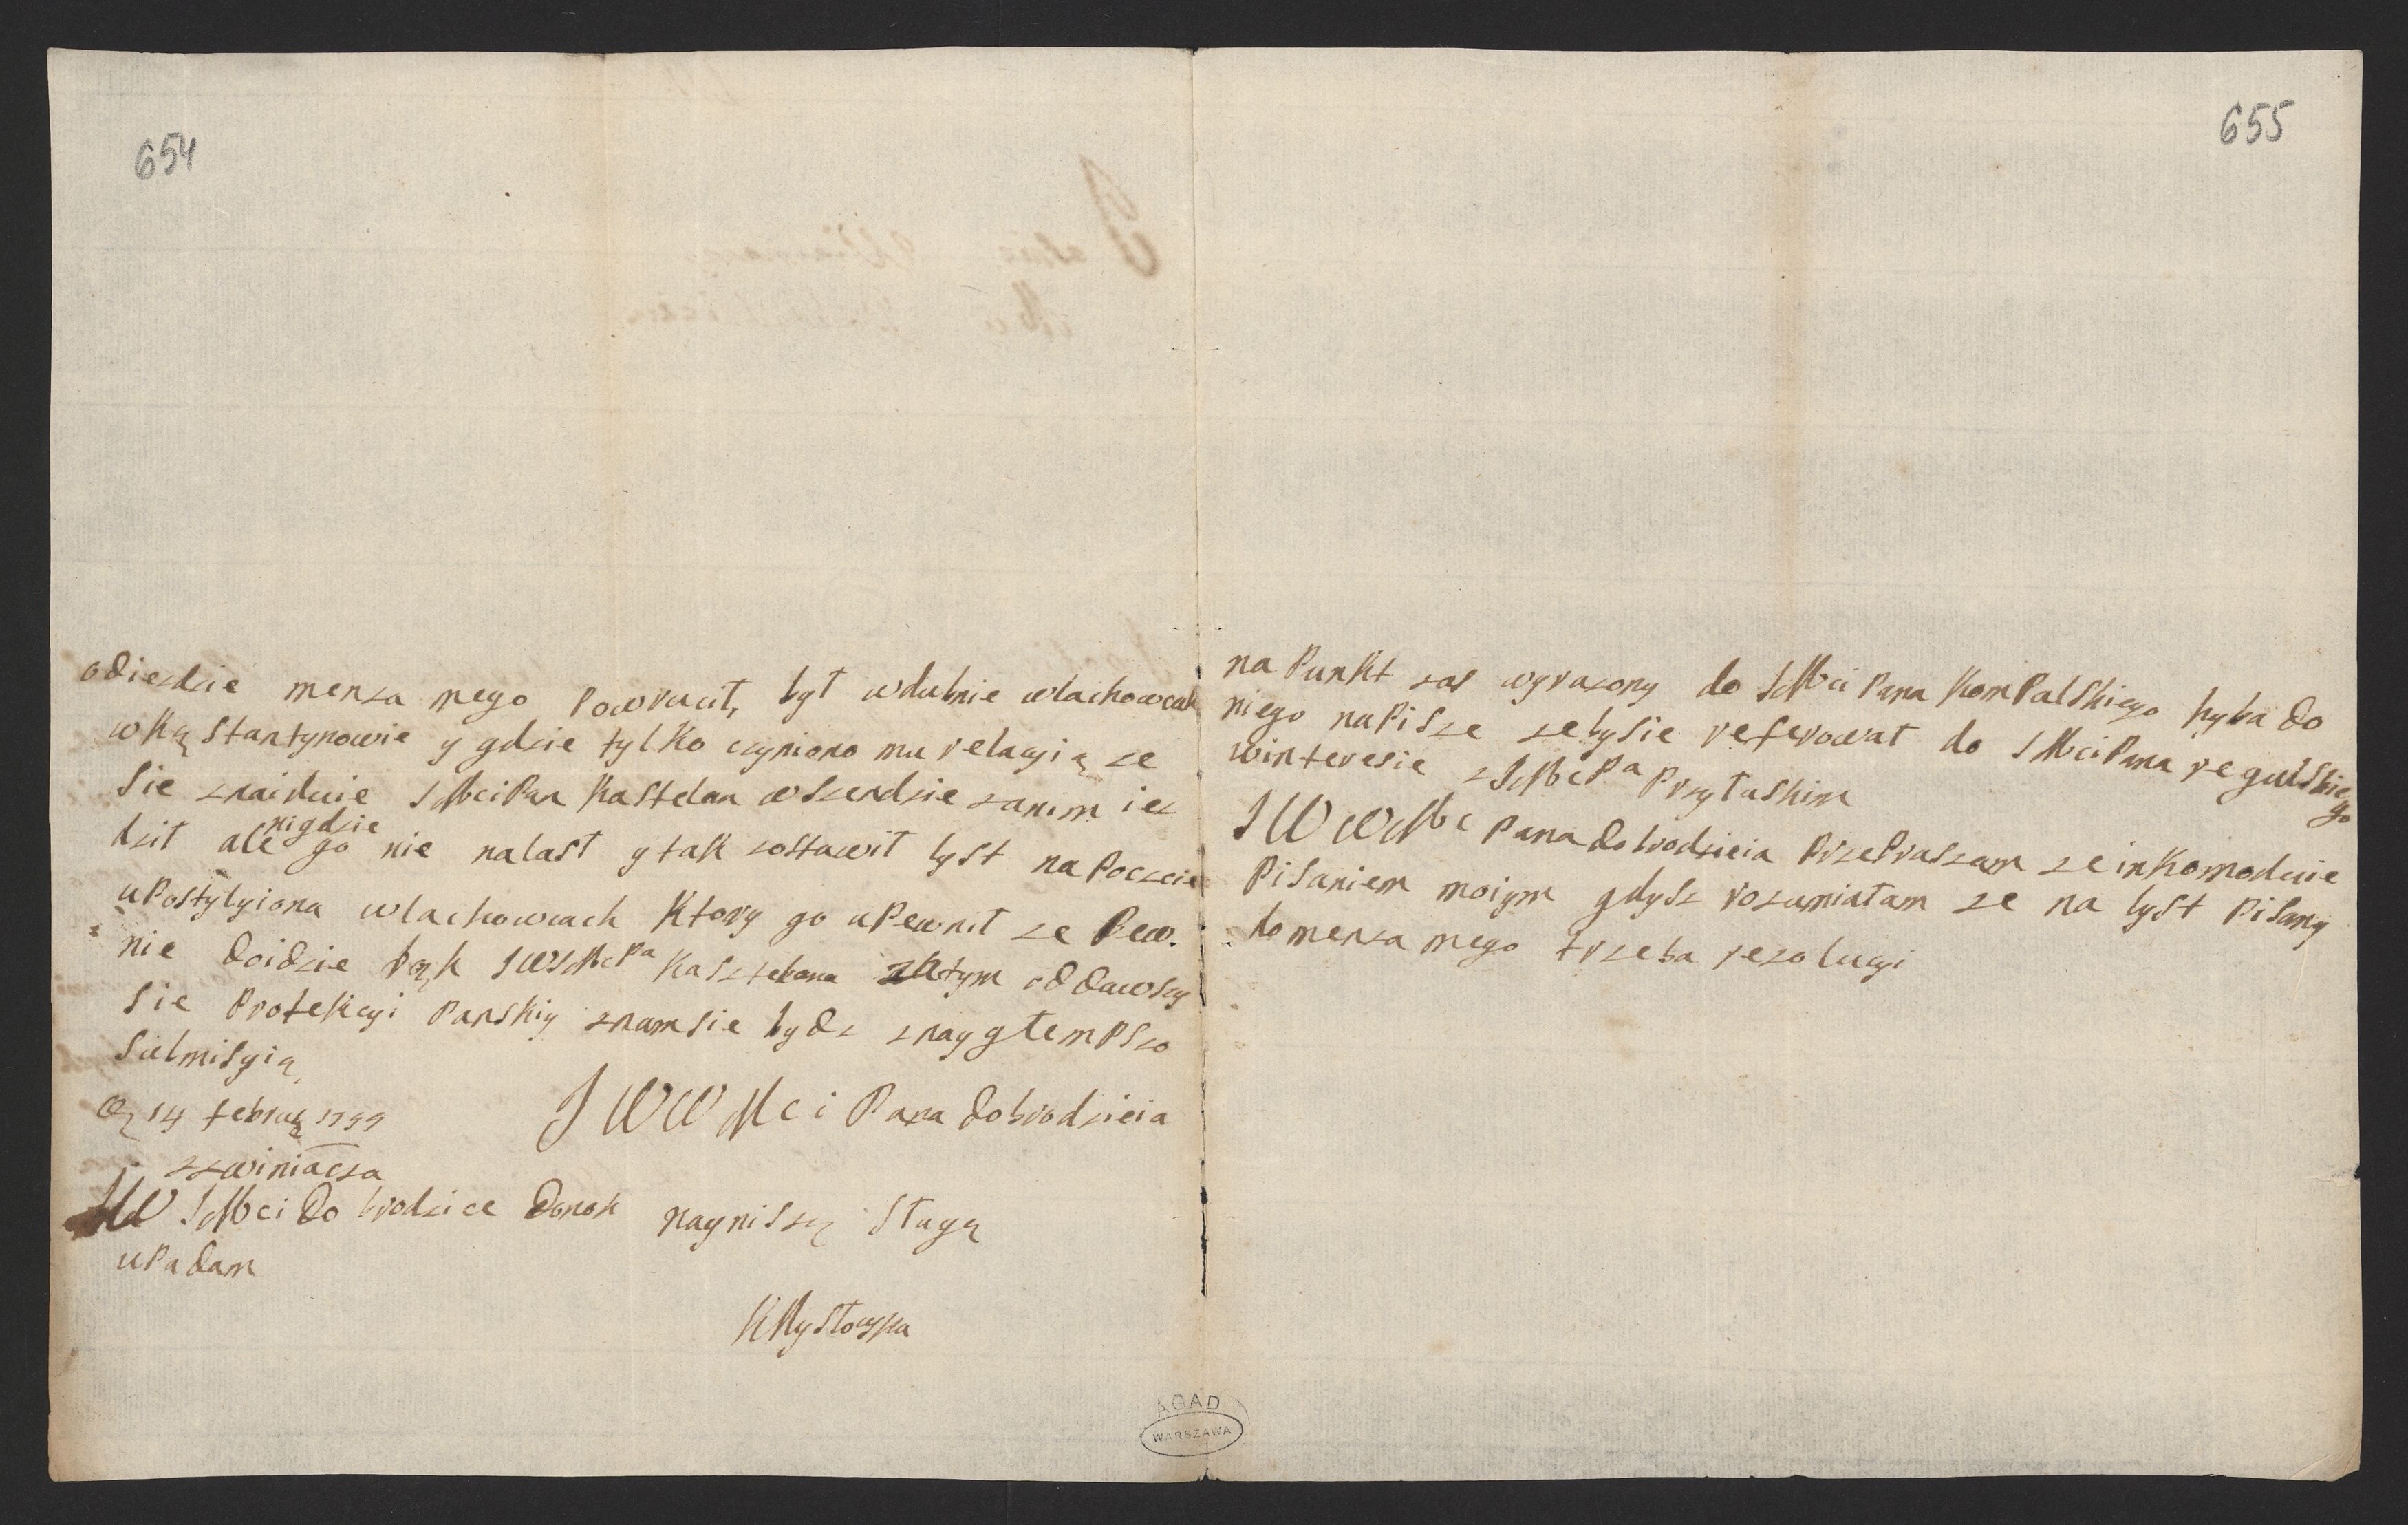 654
odiezdzie menza mego powrucił, był wdubnie wlachowcah
wkąstantynowie y gdzie tylko czyniono mu relacyią ze
sie znaiduie JMciPan Kastelan wszendzie zanim iez
nigdzie
dził ale go nie nalasł y tak zostawił lyst na Poczcie
uPostylyiona wlachowcach Ktory go uPewnił ze Pew.
nie doidzie rąk JWJMcPa Kasztelana zatym oddawszy
sie Protekcyi Parskiy znamsie bydz znaygłempszo
submisyią
14 februa
JWWMci Pana dobrodzieia
zzwiniacza
JW JMci Dobrodzice Donok nayniszą sługą
uPadam
KMysłowska
655
na Punkt zas wyrazony do JMci Pana KomPalskiego hyba do
niego naPisze zebysie referował do JMciPana regulskie
go
winteresie zJMcPa Przyłuskim
JWWMc Pana dobrodzieia PrzePraszam ze inKomoduie
Pisaniem moiym gdysz rozumiałam ze na lyst Pisany
do menza mego trzeba rezolucyi
AGAD
WARSZAWA